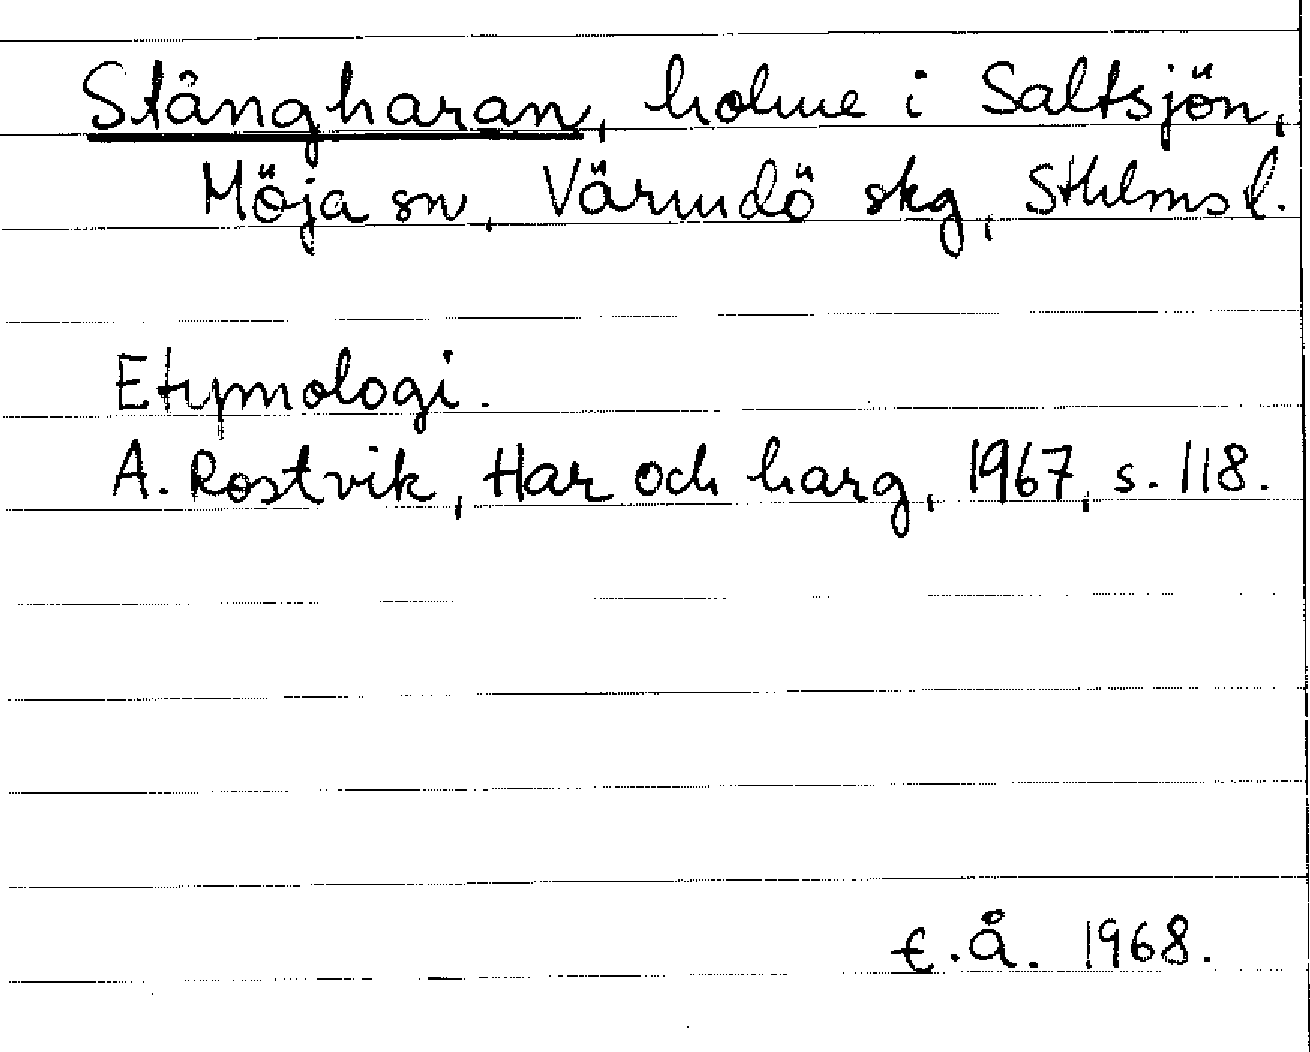 Stångharan, holme i Saltsjön,
Möja sn, Värmdö skg, Sthlms l.
Etymologi.
A. Rostvik, Har och harg, 1967, s. 118.
E.Å. 1968.